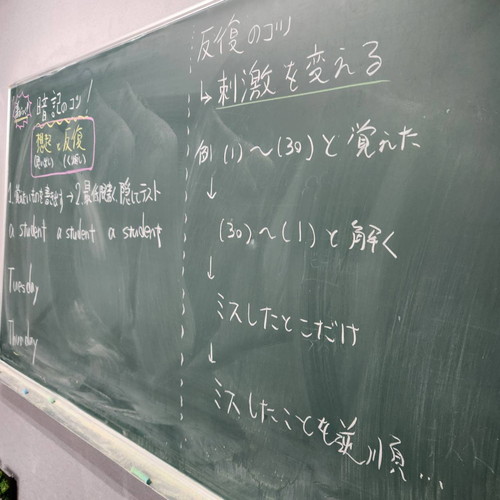 暗記のコツ!
想起と反復
(思い出し) (くり返し)
1.覚えたいものを書き出す→2.最低1回書く、隠してテスト
a student a student a student
Tuesday
Thursday
反復のコツ
↳刺激を変える
例 (1)〜(30)と覚えた
↓
(30)〜(1)と解く
↓
ミスしたとこだけ
↓
ミスしたことを逆順...